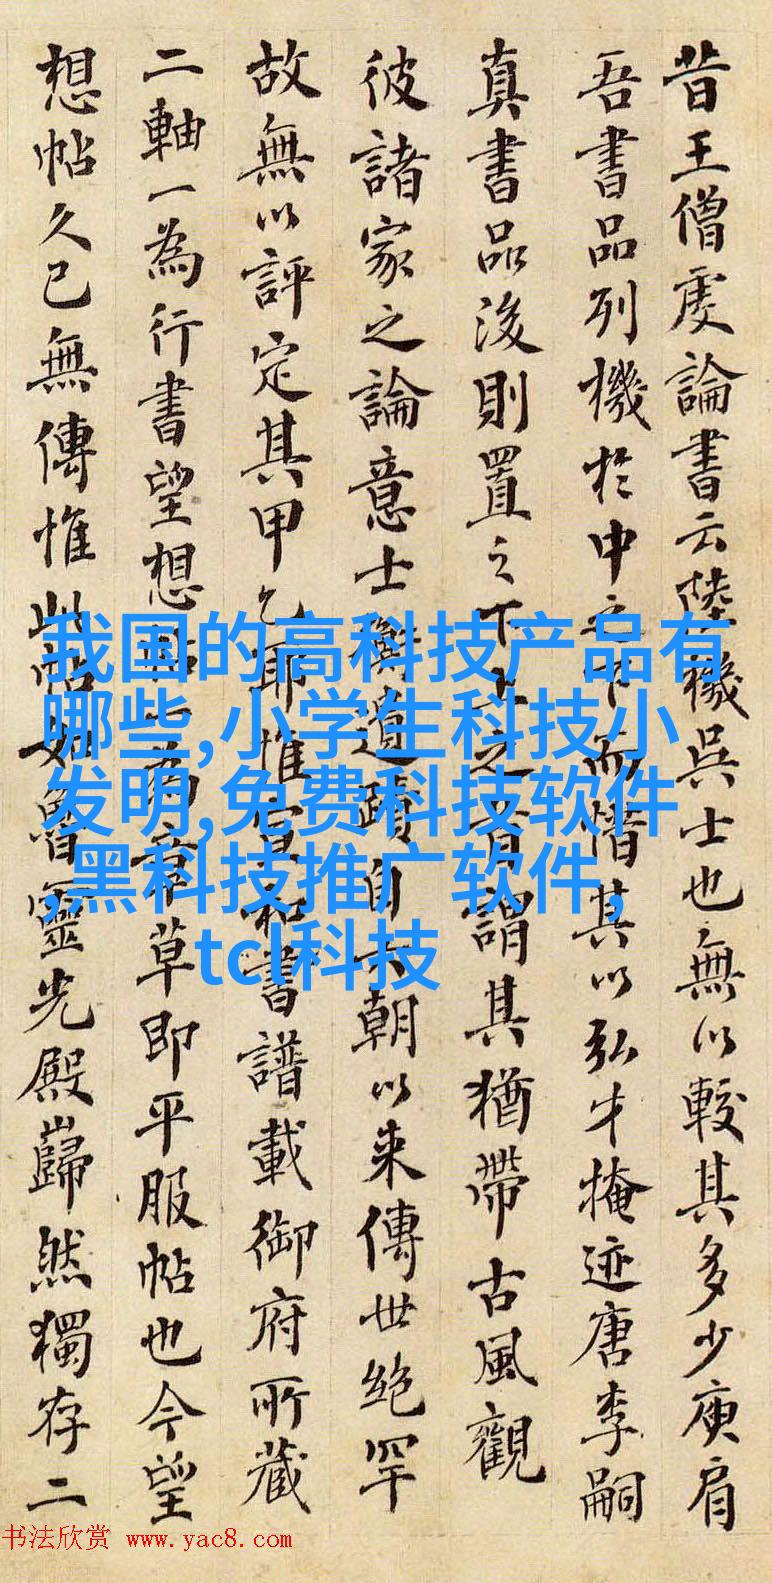 昔王僧虔論書云陸機吳士也無以較其多少庾肩
吾書品列機於中之下而惜其以弘才掩迹唐李嗣
真書品後則置之下上之首謂其猶帶古風觀
彼諸家之論意士衡遺蹟自六朝以來傳世絕罕
故無以評定其甲乙耶惟宣和書譜載御府所藏
二軸一為行書望想帖一為章草即平服帖也今望
想帖久已無傳惟此帖如魯靈光殿巋然獨存二
我国的高科技产品有
哪些,小学生科技小
发明,免费科技软件
,黑科技推广软件,
tcl科技
书法欣赏 www.yac8.com